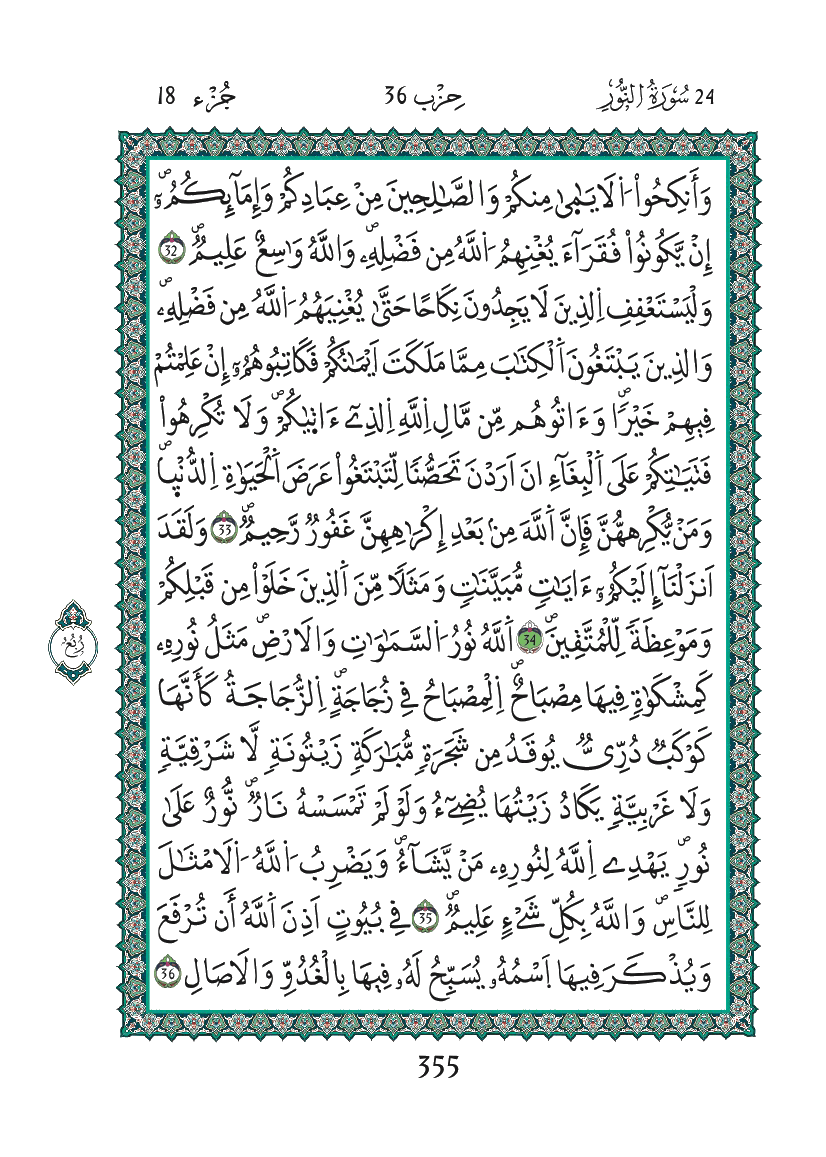 24 سُورَةُ النُّورِ
حِزْب 36
جُزْء 18
وَأَنكِحُواْ اُ۬لَايَٰم۪يٰ مِنكُمْ وَالصَّٰلِحِينَ مِنْ عِبَادِكُمْ وَإِمَآئِكُمُۥٓۖ
إِنْ يَّكُونُواْ فُقَرَآءَ يُغْنِهِمُ اُ۬للَّهُ مِن فَضْلِهِۦۖ وَاللَّهُ وَٰسِعٌ عَلِيمٌۖ 32
وَلْيَسْتَعْفِفِ اِ۬لذِينَ لَا يَجِدُونَ نِكَاحًا حَتَّىٰ يُغْنِيَهُمُ اُ۬للَّهُ مِن فَضْلِهِۦۖ
وَالذِينَ يَبْتَغُونَ اَ۬لْكِتَٰبَ مِمَّا مَلَكَتَ اَيْمَٰنُكُمْ فَكَاتِبُوهُمُۥٓ إِنْ عَلِمْتُمْ
فِيهِمْ خَيْرًاۖ وَءَاتُوهُم مِّن مَّالِ اِ۬للَّهِ اِ۬لذِےٓ ءَات۪يٰكُمْۖ وَلَا تُكْرِهُواْ
فَتَيَٰتِكُمْ عَلَى اَ۬لْبِغَآءِ انَ اَرَدْنَ تَحَصُّنًا لِّتَبْتَغُواْ عَرَضَ اَ۬لْحَيَوٰةِ اِ۬لدُّنْي۪اۖ
وَمَنْ يُّكْرِههُّنَّ فَإِنَّ اَ۬للَّهَ مِنۢ بَعْدِ إِكْرَٰهِهِنَّ غَفُورٌ رَّحِيمٌۖ 33 وَلَقَدَ
اَنزَلْنَآ إِلَيْكُمُۥٓ ءَايَٰتٖ مُّبَيَّنَٰتٖ وَمَثَلًا مِّنَ اَ۬لذِينَ خَلَوْاْ مِن قَبْلِكُمْ
وَمَوْعِظَةً لِّلْمُتَّقِينَۖ 34 اَ۬للَّهُ نُورُ اُ۬لسَّمَٰوَٰتِ وَالَارْضِۖ مَثَلُ نُورِهِۦ
كَمِشْكَوٰةٖ فِيهَا مِصْبَاحٌۖ اِ۬لْمِصْبَاحُ فِے زُجَاجَةٍۖ اِ۬لزُّجَاجَةُ كَأَنَّهَا
كَوْكَبٌ دُرِّيٌّ يُوقَدُ مِن شَجَرَةٖ مُّبَٰرَكَةٖ زَيْتُونَةٖ لَّا شَرْقِيَّةٖ
وَلَا غَرْبِيَّةٖ يَكَادُ زَيْتُهَا يُضِےٓءُ وَلَوْ لَمْ تَمْسَسْهُ نَارٌۖ نُّورٌ عَلَىٰ
نُورٖۖ يَهْدِے اِ۬للَّهُ لِنُورِهِۦ مَنْ يَّشَآءُۖ وَيَضْرِبُ اُ۬للَّهُ اُ۬لَامْثَٰلَ
لِلنَّاسِۖ وَاللَّهُ بِكُلِّ شَےْءٍ عَلِيمٌۖ 35 فِے بُيُوتٍ اَذِنَ اَ۬للَّهُ أَن تُرْفَعَ
وَيُذْكَرَ فِيهَا اَ۪سْمُهُۥ يُسَبِّحُ لَهُۥ فِيهَا بِالْغُدُوِّ وَالَاصَالِ 36
رُبُع
355